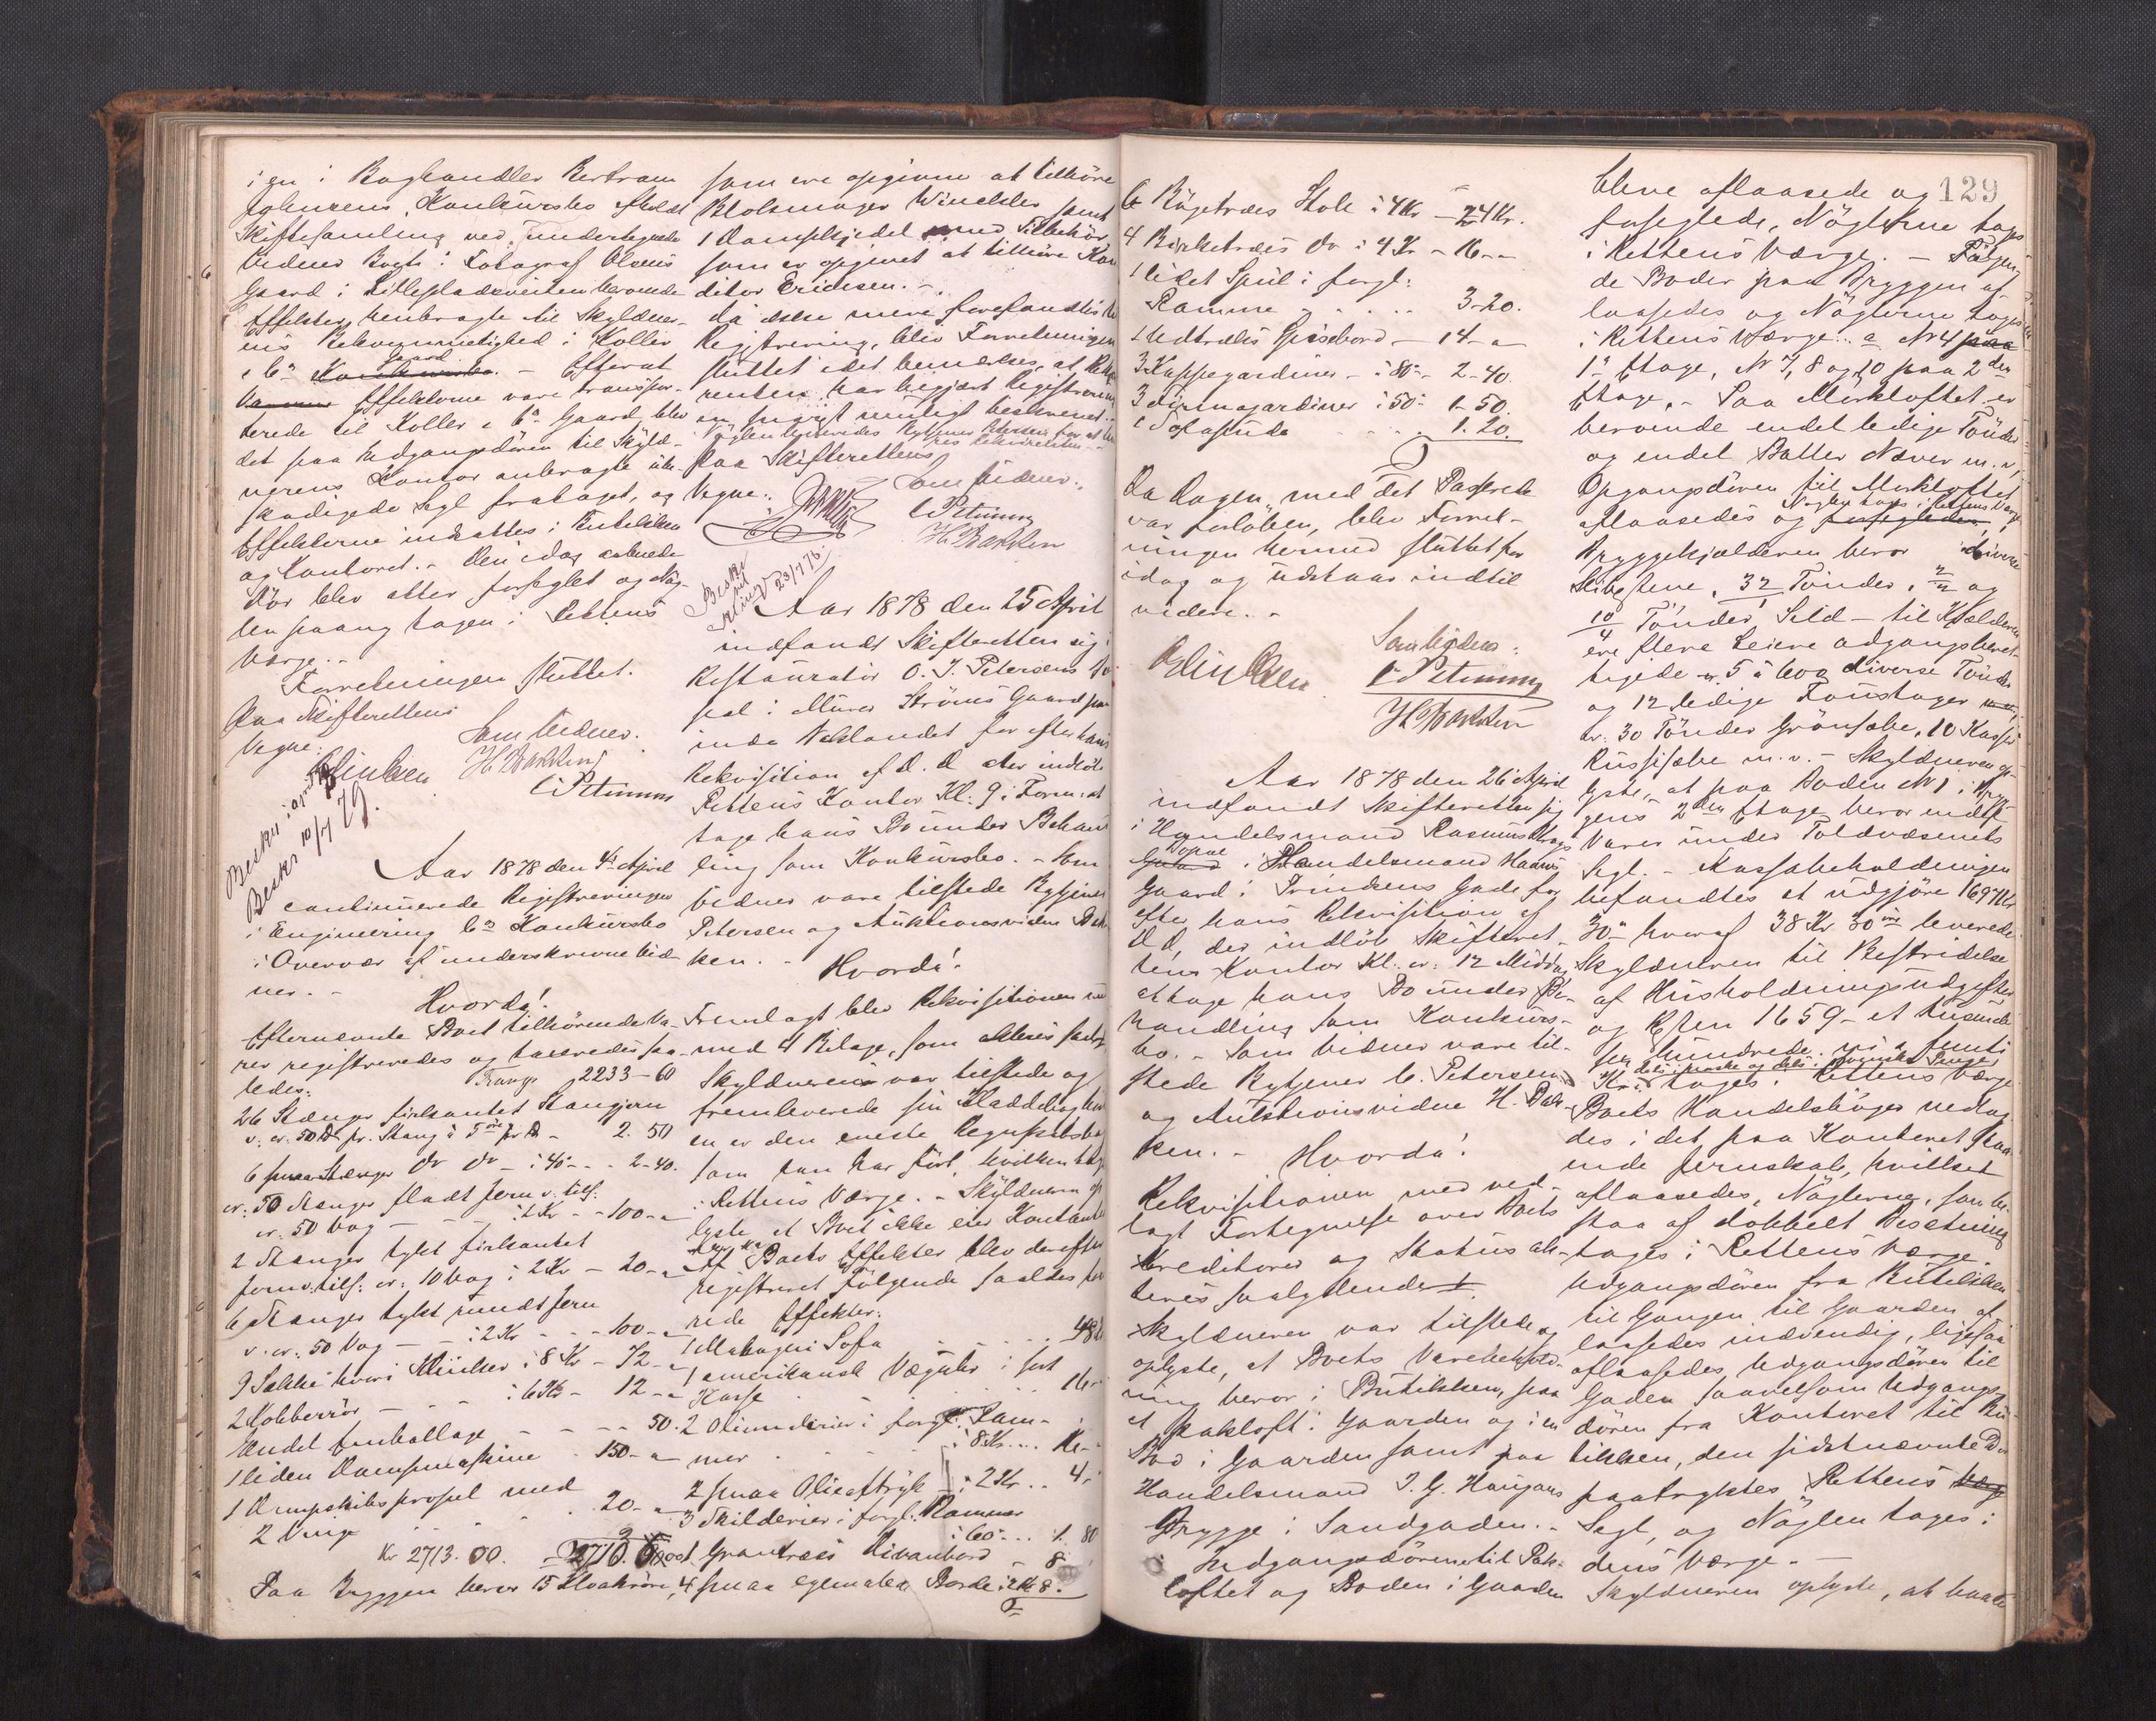 i en i Boghandler Bertram
Konkursbo afholdt
Skiftesamling ved undertegnede
Vidner Bragte i Fotograf Olsens
Gaard i beroende
Effekter, henbragte til Skyldner-
ens Bekvemmelighed i Koller
& Co Gaard. - Efterat
Effekterne vare transpor-
terede til Koller & Co Gaard, blev
det paa Udgangsdören til Skyld-
nerens Kontor anbragte ube-
skadigede Segl frataget, og
Effekterne indsattes i Butikken
og Kontoret. - Den idag aabnede
Dör blev atter forseglet og Nög-
len paany tagen i Rettens
Værge. -
Forretningen sluttet.
Paa Skifterettens
Vegne:
Som Vidner.
H. Bakken
C Petersen
Beskr
Beskr 10/4 79.
Aar 1878 den 4de April
continuerede Registreringen
i Engineering Co Konkursbo
i Overvær af underskrevne Vid-
ner. -
Hvorda!
Efternævnte Boet tilhörende Va-
rer registreredes og taxeredes saa-
ledes:
Transp 2233-60
26 Stænger firkantet Stangjern
v. cr. 50 pr. Stang à 5 öre pr - 2.50
6 smaa Stænger do do - à 40 - - 2-40.
cr: 50 Stænger fladt Jern v. tils.
cr. 50 Vog - - à 2 Kr - - 100 - "
2 Stænger tykt firkantet
Jern v. tils: cr: 10 Vog à 2 Kr - 20 - "
6 Stænger tykt rundt Jern
v. cr. 50 Vog - à 2 Kr - - - 100 - "
9 Sække hvori à 8 Kr - 72 - "
2 Kobberrör - - - à 6 Kr - 12 - "
Endel Emballage - - - - 50.
1 liden Dampmaskine - 150 - "
1 Dampskibspropel med
2 Vinge . . . . 20 - "
Kr 2713.00.
Paa Bryggen beror 15 Kloakrör,
som ere opgivne at tilhöre
Blokmager Winckler samt
1 Dampkjedel med Tilbehör
som er opgivet at tilhöre Kon
ditor Erichsen. -
Da ikke mere forefandtes til
Registrering, blev Forretningen
sluttet idet bemærkes, at Rekvi
renten har begjært Registrering
Paa Skifterettens
Vegne:
Som Vidner.
C Petersen
H. Bakken
Beskr
23/1 78.
Aar 1878 den 25 April
indfandt Skifteretten sig i
Restauratör O. J. Petersens Lo
kal i Murer Ströms Gaard paa
indre Baklandet for efter hans
Rekvisition af D. D. der indlöb
Rettens Kontor Kl: 9 i Form: at
tage hans Bo under Behand
ling som Konkursbo. - Som
Vidner vare tilstede Bytjener
Petersen og Auktionsvidne Bak
ken. -
Hvorda!
Fremlagt blev Rekvisitionen
med 4 Bilage, som
Skyldneren var tilstede og
fremleverede sin Kladdebog hvor
en er den eneste Regnskabsbog
som han har fört, hvilken toges
i Rettens Værge. - Skyldneren op
lyste at Boet ikke eier Kontanter
Af Boets Effekter blev derefter
registreret fölgende saaledes
rede Effekter:
1 Mahogni Sofa . . . .
1 amerikansk Vægtuhr i sort
Kasse . . . . .
2 Oliemalerier i forgl. Ram-
mer . . . à 8 Kr. . . 16 -
2 smaa Olieaftryk - à 2 Kr . . 4 -
3 Skilderier i forgl. Rammer
à 60 . . 1. 80
1 Grantræes Divanbord - 8
4 smaa egemalet Borde à 2 Kr 8.
129
6 Bögetræes Stole à 4 Kr - 24 Kr.
4 Birketræes do à 4 Kr - 16 - -
1 lidet Speil i forgl:
Ramme . . . . 3-20.
1 Udtræks Spisebord - 14 - "
3 Kappegardiner - à 80 - 2-40.
3 à 50 - 1-50.
1 Sofapude . . . 1.20.
Da Dagen med det Passerede
var forlöben, blev Forret-
ningen hermed sluttet for
idag og udstaar indtil
videre. -
Som Vidner:
C Petersen
H. Bakken
Aar 1878 den 26 April
indfandt Skifteretten sig
i Handelsmand Rasmus
Lokal i Handelsmand
Gaard i Prindsens Gade for
efter hans Rekvisition af
D. D., der indlöb Skifteret-
tens Kontor Kl. cr: 12 Middag
at tage hans Bo under Be-
handling som Konkurs-
bo. - Som Vidner vare til-
stede Bytjener C. Petersen
og Auktionsvidne H. Bak-
ken. - Hvorda!
Rekvisitionen med ved-
lagt Fortegnelse over Boets
Kreditorer og Status ak-
teres saalydende
Skyldneren var tilstede og
oplyste, at Boets Varebehold-
ning beror i Butikken, paa
et Pakloft i Gaarden og i en
Bod i Gaarden samt paa
Handelsmand J. G. Haugans
Brygge i Sandgaden. -
Indgangsdörene til Pak-
loftet og Boden i Gaarden
bleve aflaasede og
forseglede, Nöglerne toges
i Rettens Værge. - Fölgen
de Boder paa Bryggen af-
laasedes og Nöglerne toges
i Rettens Værge: No 4
1ste Etage, No 7, 8 og 10 paa 2den
Etage. - Paa Mörkloftet er
beroende endel ledige Tönder
og endel Balter Næver m. v.
Opgangsdören til Mörkloftet
aflaasedes og Nöglen toges i Rettens Værge
Bryggekjælderen beror diverse
32 Tönder, og
10/4 Tönder Sild - til Kjælderen
ere flere Leiere adgangsberet-
tigede - 5 à 600 diverse Tönder
og 12 ledige Foustager
cr: 30 Tönder Grönsæbe, 10 Kasser
m. v. - Skyldneren op-
lyste, at paa Boden No 1 i Bryg-
gens 2den Etage beror endel
Varer under Toldvæsenets
Segl. - Kassabeholdningen
befandtes at udgjöre 1697 Kr
30 hvoraf 38 Kr 30 öre leverede
Skyldneren til Bestridelse
af Husholdningsudgifter
og Resten 1659 - et tusinde
sex hundrede ni og femti
Kr. toges i Rettens Værge
Boets Handelsböger nedlag
des i det paa Kontoret staa
ende Jernskab, hvilket
aflaasedes, Nöglerne, som be-
staa af dobbelt Besætning
toges i Rettens Værge.
Udgangsdören fra Butikken
til Gangen til Gaarden af
laasedes indvendig, ligesaa
aflaasedes Udgangsdören til
Gaden saavelsom Udgangs-
dören fra Kontoret til Bu
tikken, den sidstnævnte Dör
paatryktes Rettens
Segl, og Nöglen toges i
dens Værge. -
Skyldneren oplyste, at baade